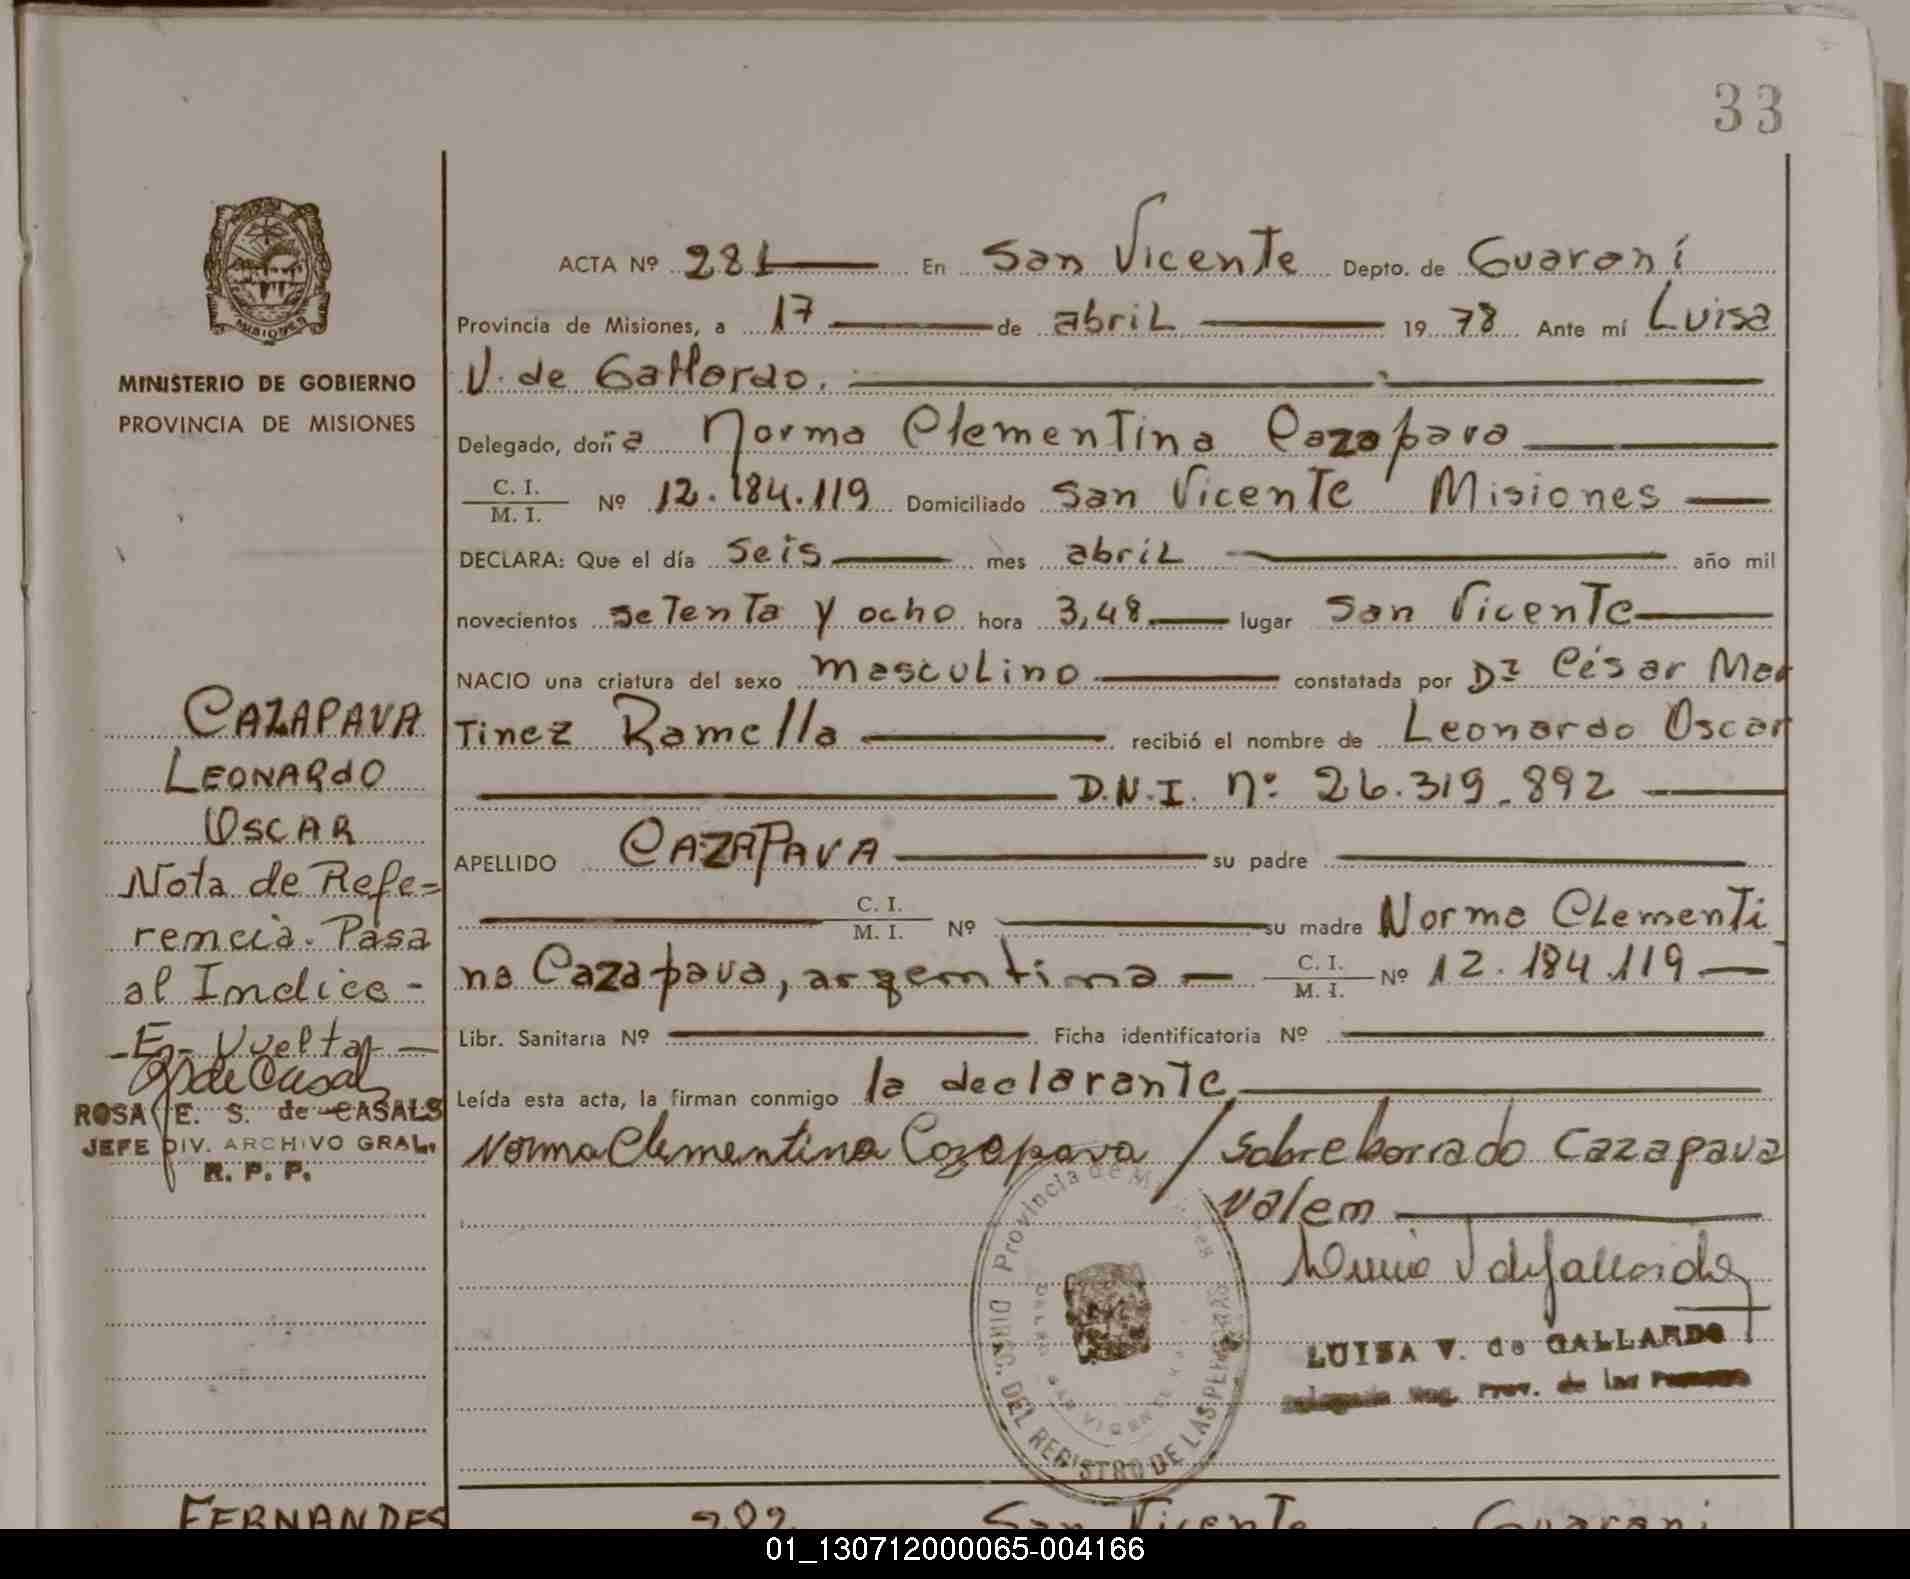 33
MISIONES
MINISTERIO DE GOBIERNO
PROVINCIA DE MISIONES
CAZAPAVA
LEONARdO
OSCAR
Nota de Refe=
rencia. Pasa
al Indice -
- E - Vuelta -
ROSA E. S. de CASALS
JEFE DIV. ARCHIVO GRAL.
R. P. P.
ACTA Nº 281 En San Vicente Depto. de Guaraní
Provincia de Misiones, a 17 de abril 19 78 Ante mí Luisa
V. de Gallardo.
Delegado, doña Norma Clementina Cazapava
C. I. / M. I. Nº 12.184.119 Domiciliado San Vicente Misiones
DECLARA: Que el día seis mes abril año mil
novecientos setenta y ocho hora 3,48 lugar San Vicente
NACIO una criatura del sexo masculino constatada por Dr César Mar
tinez Ramella recibió el nombre de Leonardo Oscar
D.N.I. nº 26.319.892
APELLIDO CAZAPAVA su padre
C. I. / M. I. Nº su madre Norma Clementi
na Cazapava, argentina C. I. / M. I. Nº 12.184.119
Libr. Sanitaria Nº Ficha identificatoria Nº
Leída esta acta, la firman conmigo la declarante
Norma Clementina Cazapava / Sobreborrado Cazapava
valem
Provincia de Misiones
DIREC. DEL REGISTRO DE LAS PERSONAS
SAN VICENTE
LUISA V. de GALLARDO
FERNANDES
282 San Vicente Guaraní
01_130712000065-004166